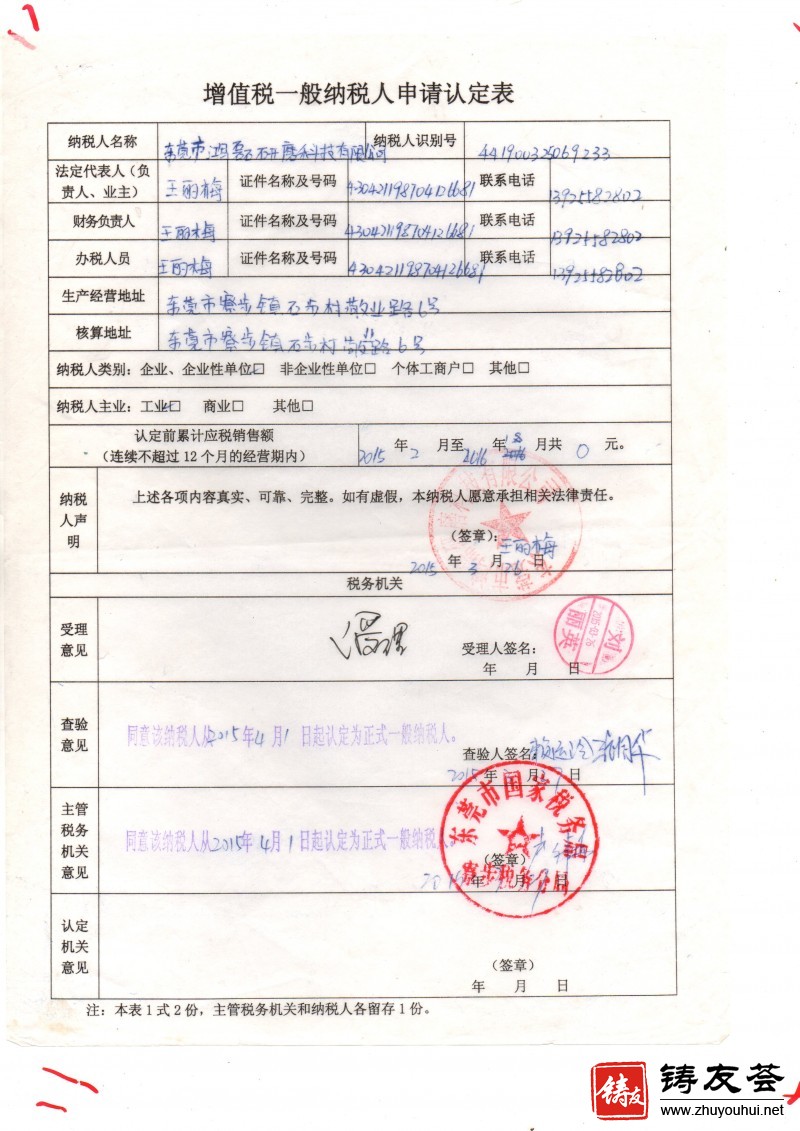 增值税一般纳税人申请认定表
纳税人名称 东莞市鸿磊研磨科技有限公司 纳税人识别号 441900325069233
法定代表人（负责人、业主） 王丽梅 证件名称及号码 430421198704126681 联系电话 13925582802
财务负责人 王丽梅 证件名称及号码 430421198704126681 联系电话 13925582802
办税人员 王丽梅 证件名称及号码 430421198704126681 联系电话 13925582802
生产经营地址 东莞市寮步镇石步村敬业路6号
核算地址 东莞市寮步镇石步村敬业路6号
纳税人类别：企业、企业性单位☑ 非企业性单位□ 个体工商户□ 其他□
纳税人主业：工业☑ 商业□ 其他□
认定前累计应税销售额
（连续不超过12个月的经营期内） 2015年2月至2016年 月共0元。
纳税人声明
上述各项内容真实、可靠、完整。如有虚假，本纳税人愿意承担相关法律责任。
（签章）：王丽梅
2015年3月26日
税务机关
受理意见
受理
受理人签名：
年 月 日
刘丽英
2015-03-26
查验意见
同意该纳税人从2015年4月1日起认定为正式一般纳税人。
查验人签名：
2015年 月 日
主管税务机关意见
同意该纳税人从2015年4月1日起认定为正式一般纳税人。
（签章）
2015年 月 日
东莞市国家税务局
寮步税务分局
认定机关意见
（签章）
年 月 日
注：本表1式2份，主管税务机关和纳税人各留存1份。
铸友
铸友荟
www.zhuyouhui.net